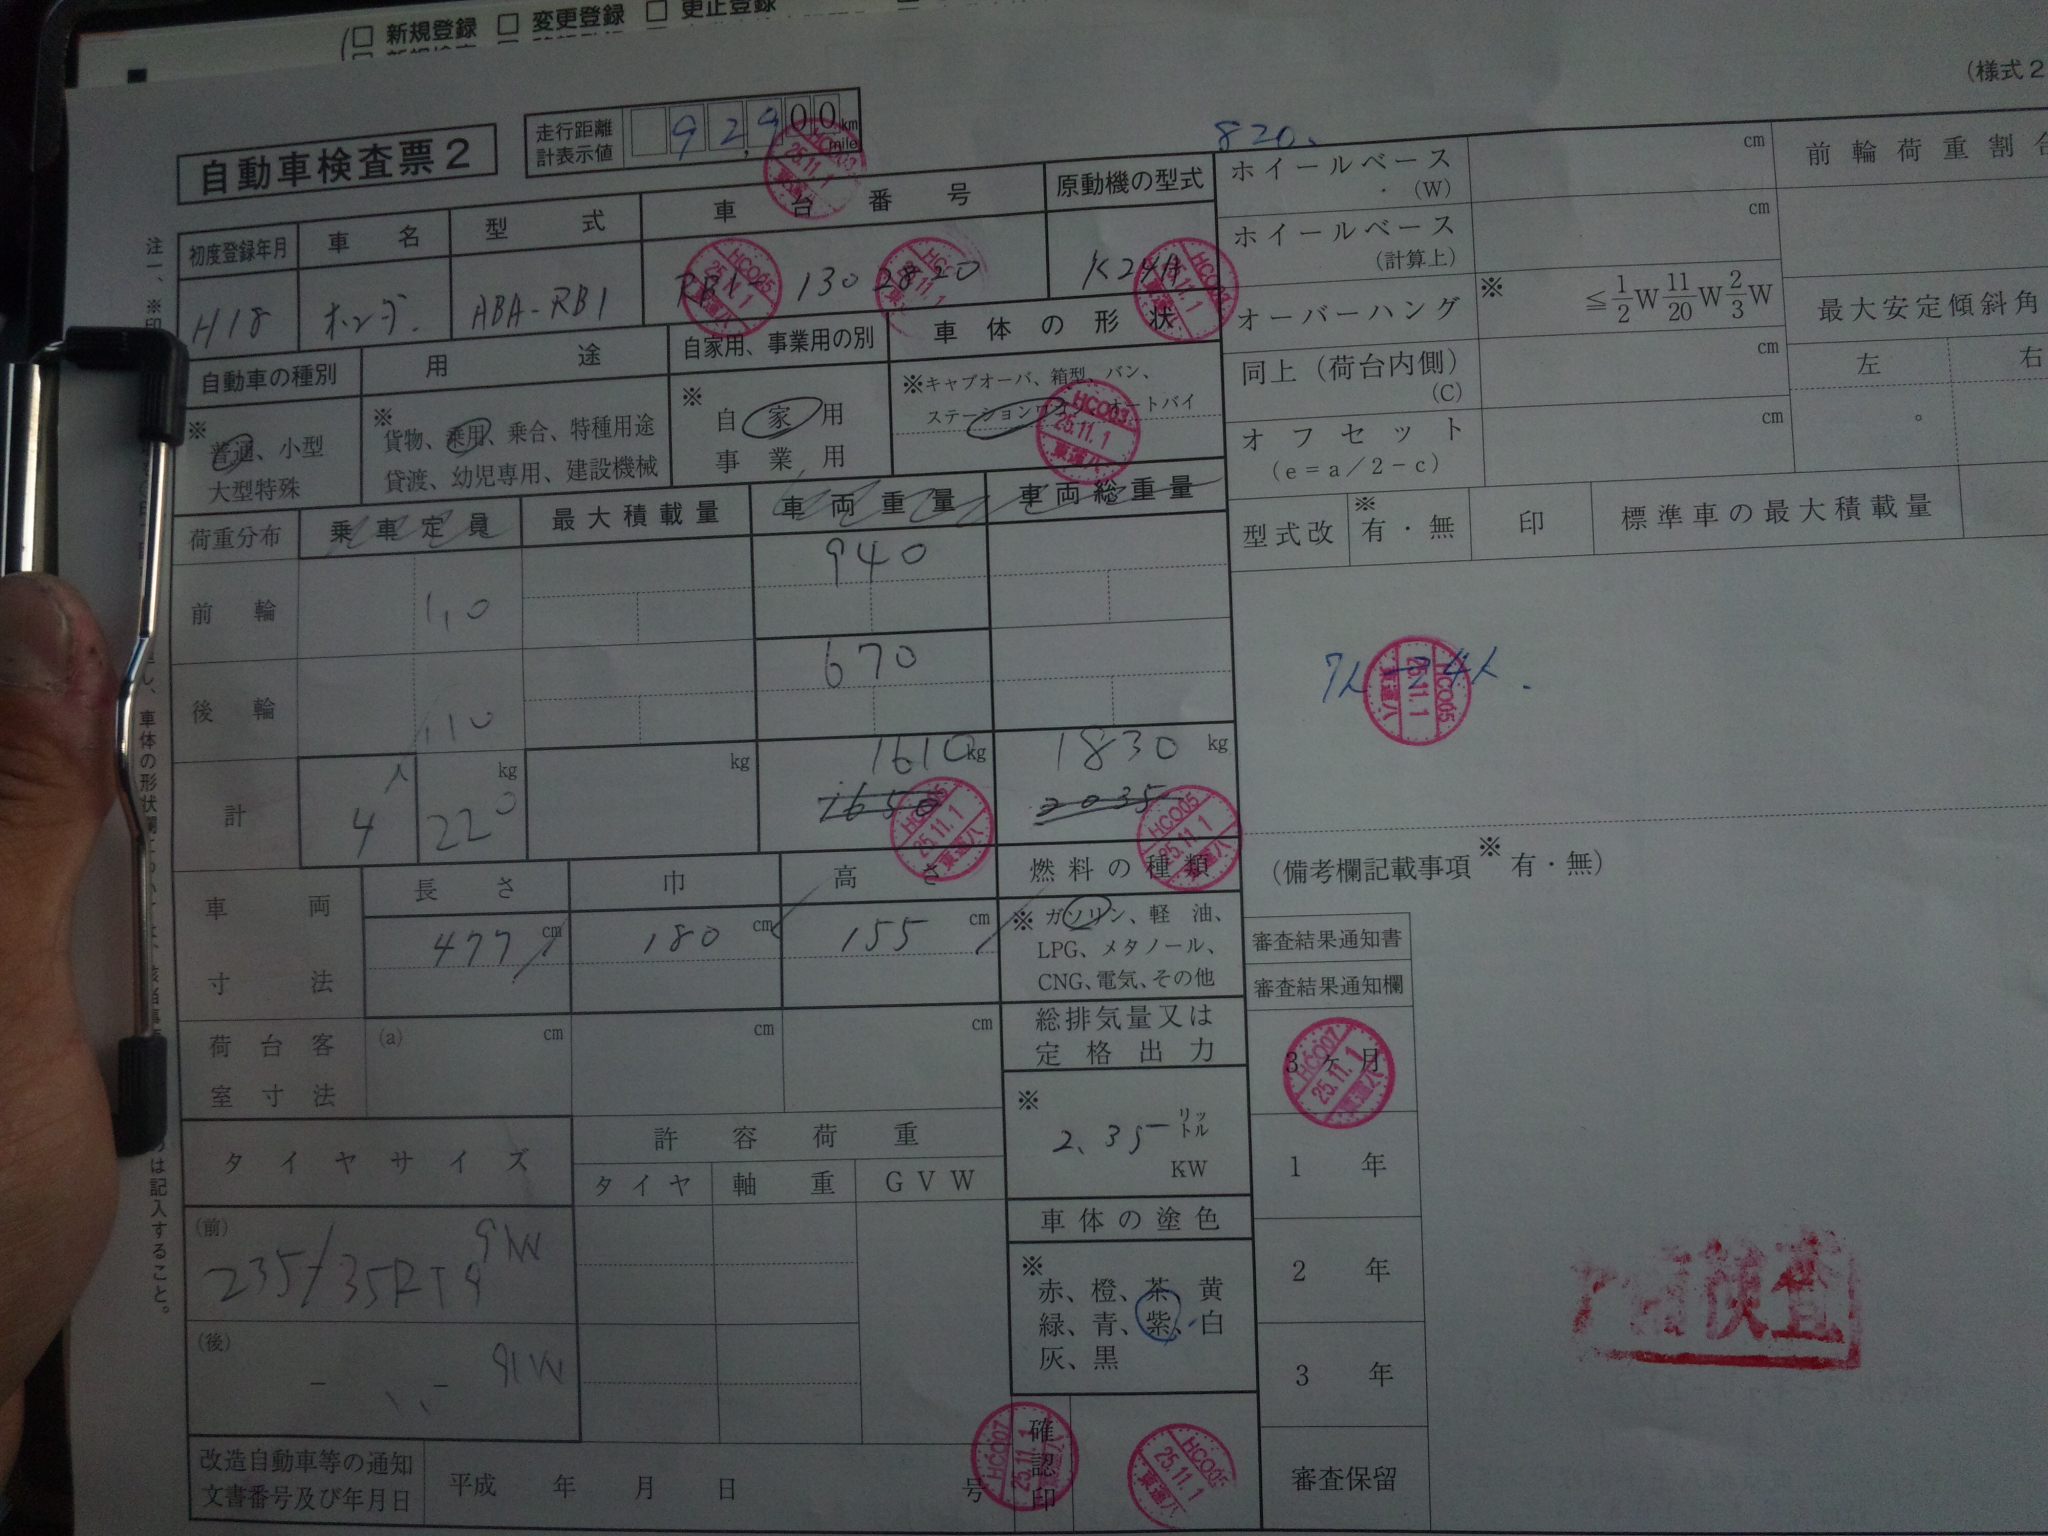 □ 新規登録 □ 変更登録 □ 更正登録
(様式2
自動車検査票2
走行距離計表示値 92,900 km mile
820.
初度登録年月 車名 型式 車台番号 原動機の型式
H18 ホンダ. ABA-RB1 RB1- 1302820 K24A
自動車の種別 用途 自家用、事業用の別 車体の形状
※ 普通、小型 大型特殊
※ 貨物、乗用、乗合、特種用途
貸渡、幼児専用、建設機械
※ 自家用
事業用
※キャブオーバ、箱型、バン、
ステーションワゴン、オートバイ
荷重分布 乗車定員 最大積載量 車両重量 車両総重量
前輪 110 940
後輪 110 670
計 4人 220kg kg 1610kg 1830kg
1650 2035
車両寸法 長さ 巾 高さ
477cm 180cm 155cm
荷台客室寸法 (a) cm cm cm
燃料の種類
※ ガソリン、軽油、
LPG、メタノール、
CNG、電気、その他
総排気量又は
定格出力
※ 2.35 リットル
KW
タイヤサイズ 許容荷重
タイヤ 軸重 GVW
(前) 235/35R19 91W
(後) 91W
車体の塗色
※
赤、橙、茶、黄
緑、青、紫、白
灰、黒
改造自動車等の通知
文書番号及び年月日
平成 年 月 日 号
確認印
ホイールベース (W) cm 前輪荷重割合
ホイールベース (計算上) cm
オーバーハング ※ ≦1/2W 11/20W 2/3W 最大安定傾斜角
同上(荷台内側) (C) cm 左 右
オフセット (e=a/2-c) cm °
型式改 ※有・無 印 標準車の最大積載量
7人→4人.
(備考欄記載事項※有・無)
審査結果通知書
審査結果通知欄
3ヶ月
1年
2年
3年
審査保留
検査
HCO05 25.11.1 東運八
HCO03 25.11.1 東運八
HCO07 25.11.1 東運八